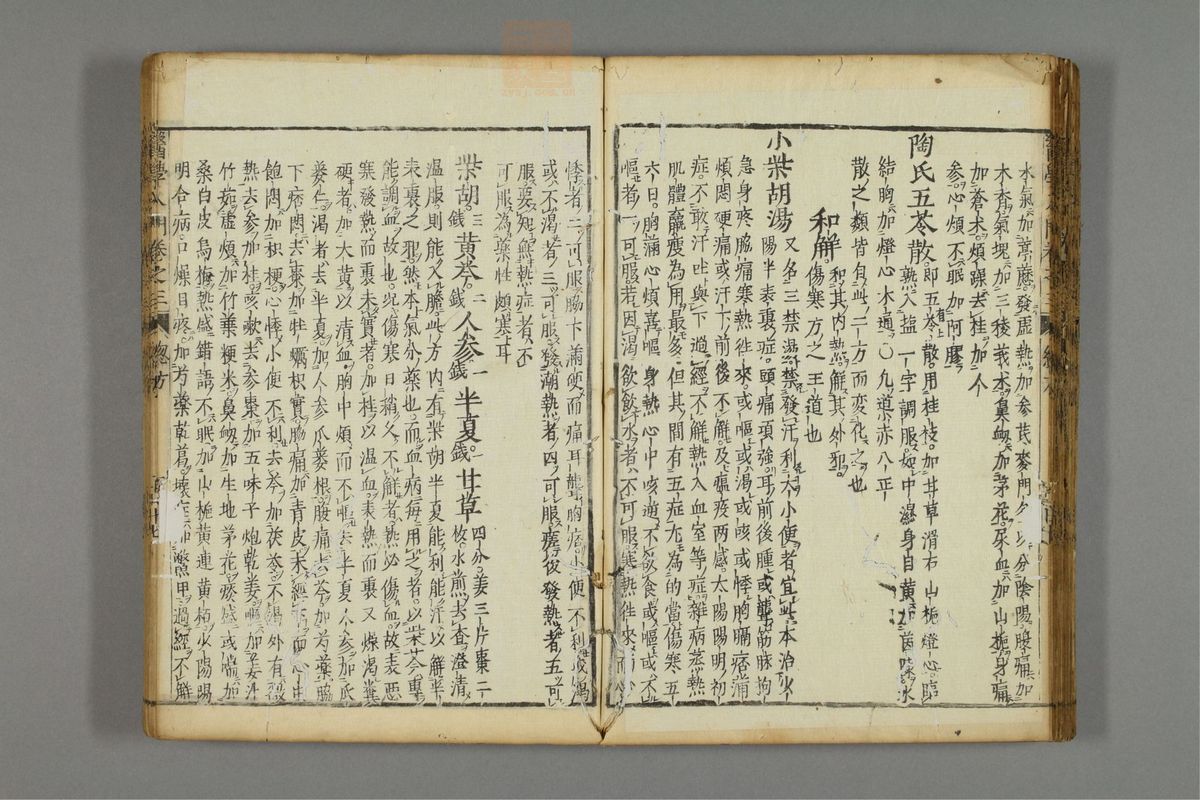 水氣加葶藶發虛熱加參芪麥門冬以分陰陽腹痛加
木香氣塊加三稜莪朮鼻衂加茅花尿血加山梔身痛
加蒼朮煩躁去桂加人
參心煩不眠加阿膠
陶氏五苓散即五苓散用桂枝加甘草滑石山梔燈心臨
熟入鹽一字調服如中濕身自黃加茵陳水
結胸加燈心木通〇九道赤八正
散之類皆自此二方而變化之也
和解和其內熱解其外邪
傷寒方之王道也
小柴胡湯又名三禁湯禁發汗利大小便者宜此本治少
陽半表裏症頭痛項強耳前後腫或聾筋脉拘
急身疼脇痛寒熱往來或嘔或渴或咳或悸胸膈痞滿
煩悶硬痛或汗下前後不解及瘟疫兩感太陽陽明初
症不敢汗吐與下過經不解熱入血室等症雜病蒸熱
肌體羸瘦為用最多但其間有五症尤為的當傷寒五
六日胸滿心煩喜嘔身熱心中咳逆不飲食或嘔或不
嘔者一可服若因渴欲飲水者不可服寒熱往來而心
悸者二可服脇下滿硬而痛耳聾胸痞小便不利或渴
或不渴者三可服發潮熱者四可服瘥後發熱者五可
服要知無熱症者不
可服為藥性頗寒耳
柴胡三錢黃芩二錢人參一錢半夏一錢甘草四分姜三片棗二
枚水煎去查澄清
溫服則能入膽此方內有柴胡半夏能利能汗以解半
表裏之邪然本氣分藥也而血病每用之者以柴芩專
能調血故也况傷寒日稍久不解者熱必傷血故表惡
寒發熱而裏未實者加桂以溫血表熱而裏又燥渴糞
硬者加大黃以清血胸中煩而不嘔去半夏人參加瓜
蔞仁渴者去半夏加人參瓜蔞根腹痛去芩加芍藥脇
下痞悶去棗加牡蠣枳實脇痛加青皮未經下而心中
飽悶加枳桔心悸小便不利去芩加茯苓不渴外有微
熱去參加桂咳嗽去參棗加五味子炮乾姜嘔加姜汁
竹茹虛煩加竹葉粳米鼻衂加生地茅花痰盛或喘加
桑白皮烏梅熱盛錯語不眠加山梔黃連黃栢少陽陽
明合病口燥目疼加芍藥乾葛壞症加鱉甲過經不解
醫學入門卷之三
總方